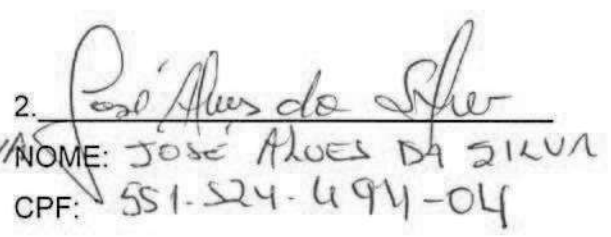 2. José Alves da Silva
NOME: JOSÉ ALVES DA SILVA
CPF: 551.524.494-04